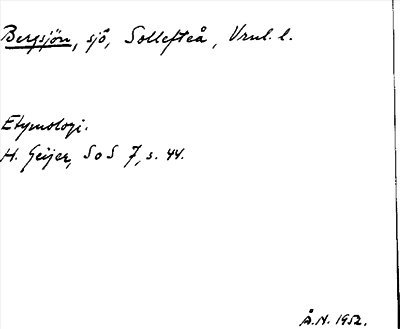 Bergsjön, sjö, Sollefteå, Vrnl. l.
Etymologi.
H. Geijer, S o S 7, s. 44.
Å.N. 1952.